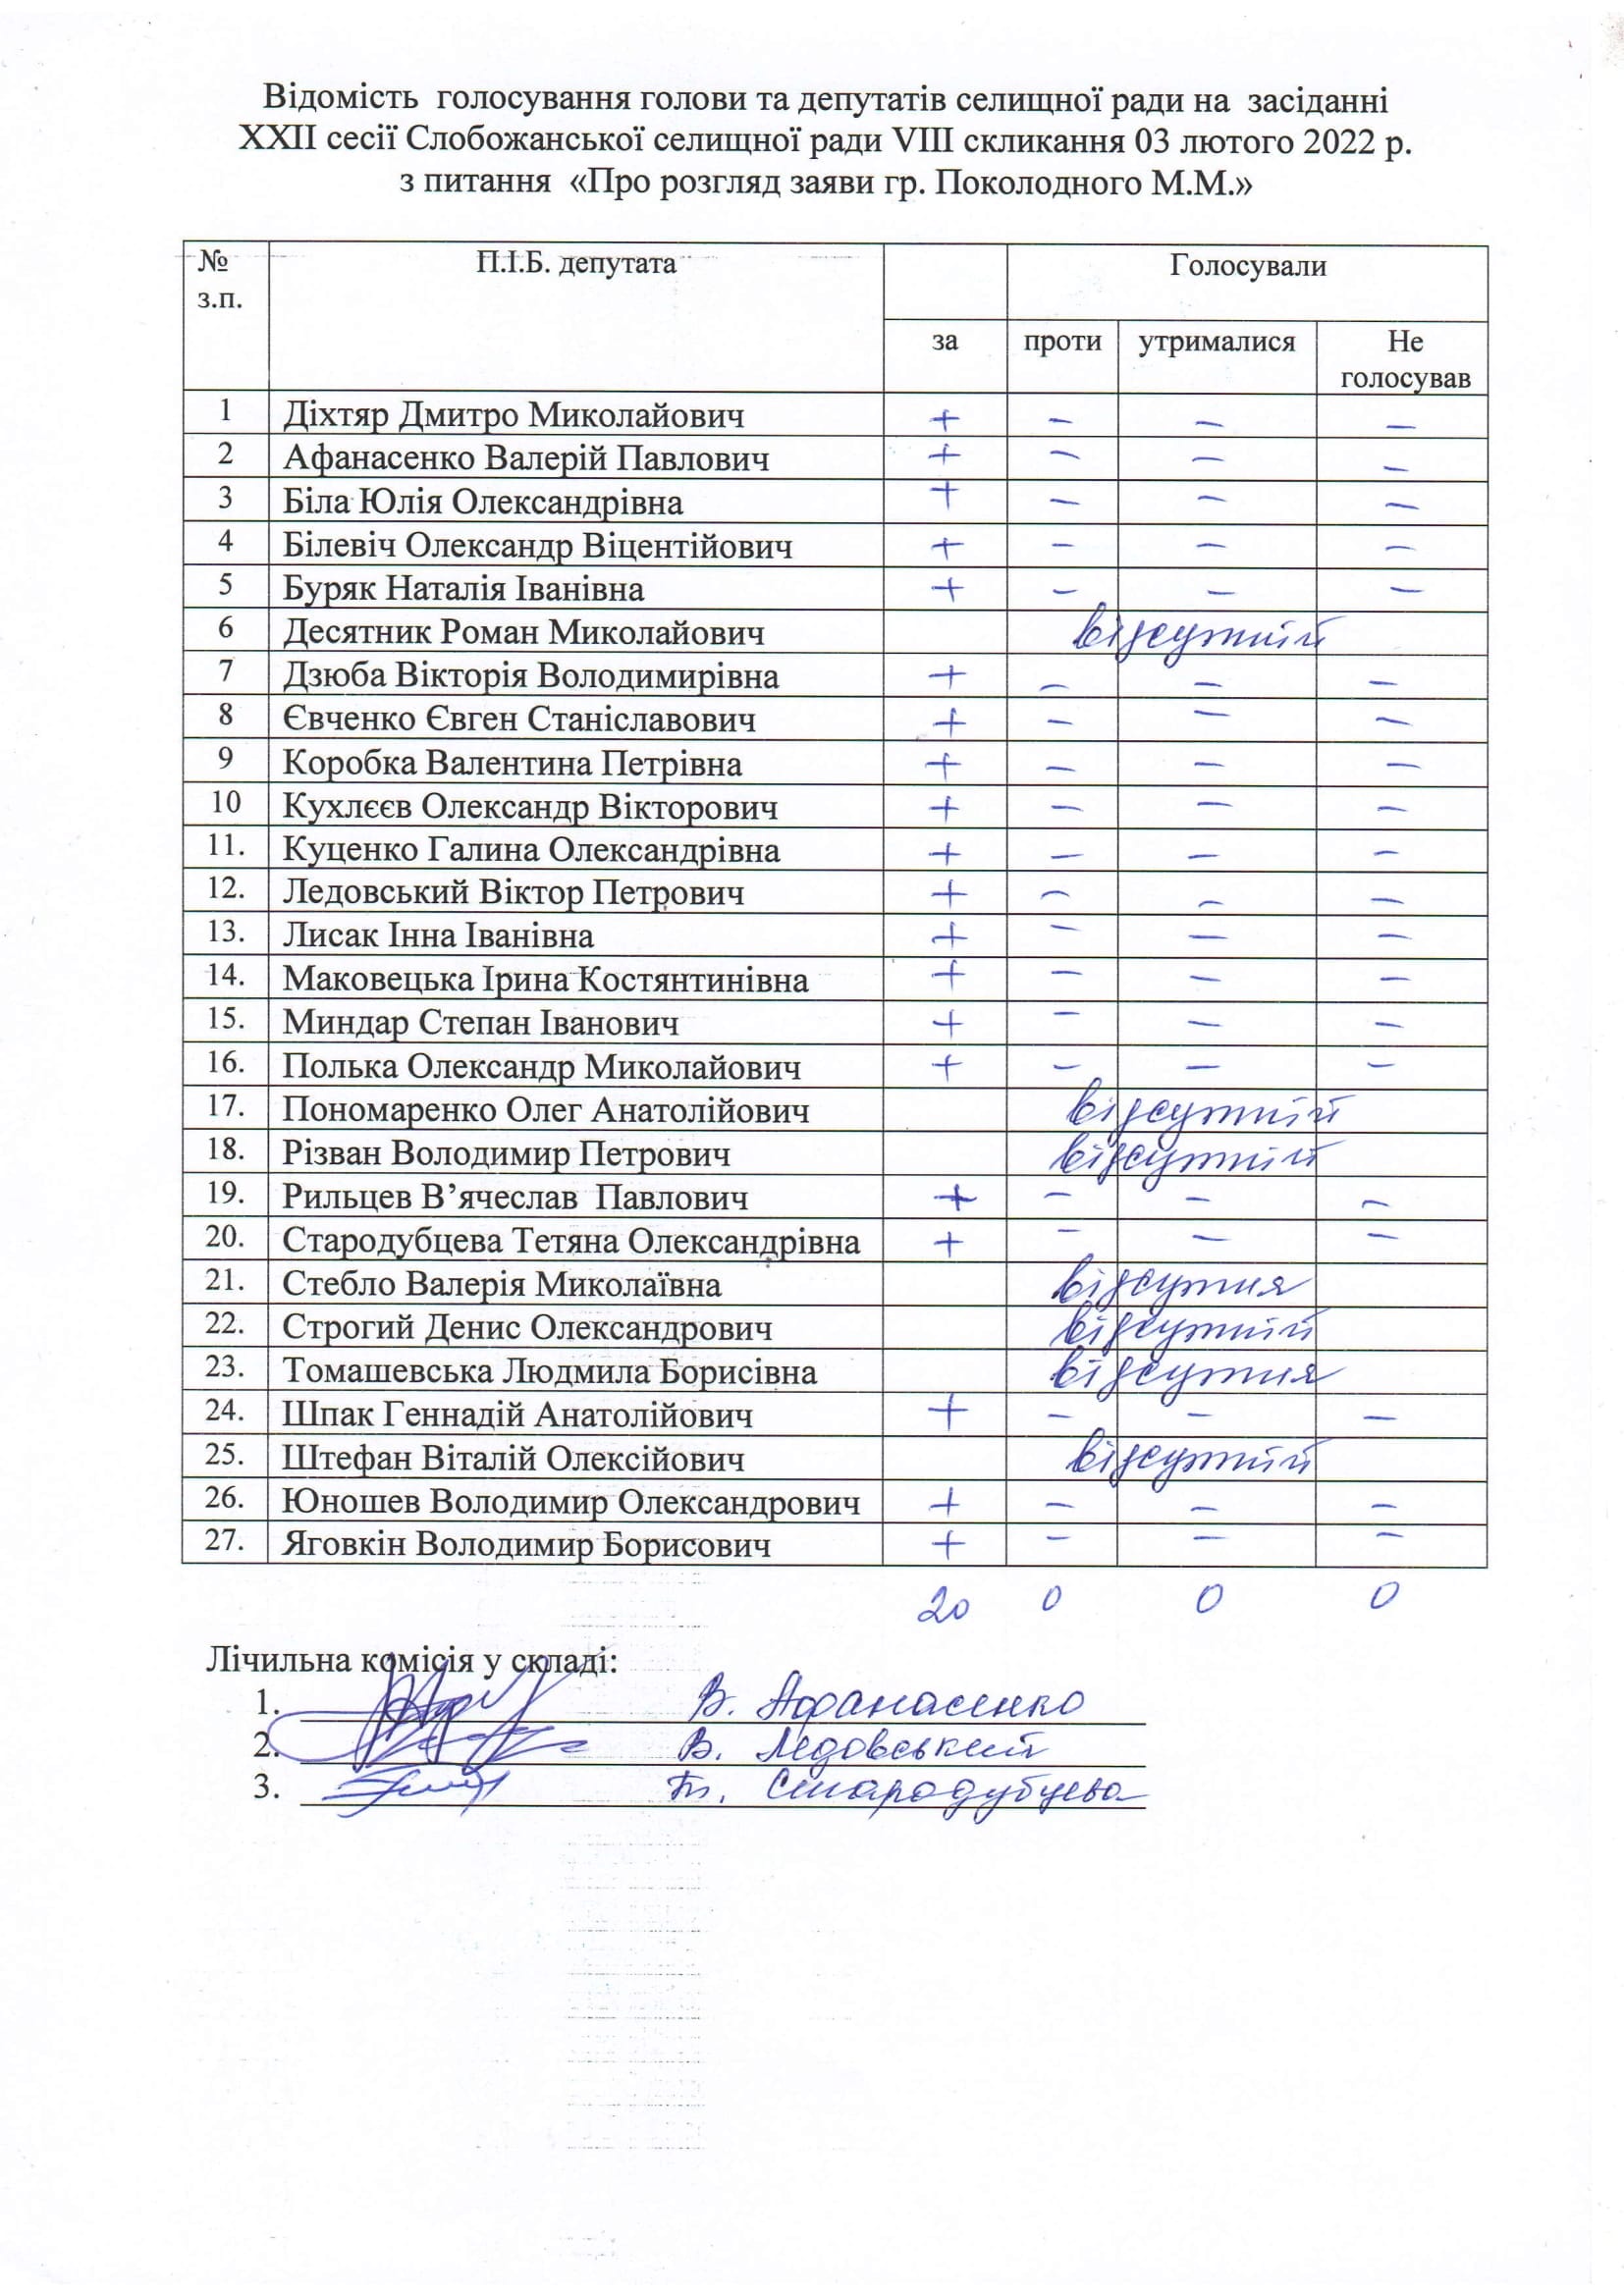 Відомість голосування голови та депутатів селищної ради на засіданні
XXII сесії Слобожанської селищної ради VIII скликання 03 лютого 2022 р.
з питання «Про розгляд заяви гр. Поколодного М.М.»
№ з.п. П.І.Б. депутата Голосували
за проти утрималися Не голосував
1 Діхтяр Дмитро Миколайович + – – –
2 Афанасенко Валерій Павлович + – – –
3 Біла Юлія Олександрівна + – – –
4 Білевіч Олександр Віцентійович + – – –
5 Буряк Наталія Іванівна + – – –
6 Десятник Роман Миколайович відсутній
7 Дзюба Вікторія Володимирівна + – – –
8 Євченко Євген Станіславович + – – –
9 Коробка Валентина Петрівна + – – –
10 Кухлєєв Олександр Вікторович + – – –
11. Куценко Галина Олександрівна + – – –
12. Ледовський Віктор Петрович + – – –
13. Лисак Інна Іванівна + – – –
14. Маковецька Ірина Костянтинівна + – – –
15. Миндар Степан Іванович + – – –
16. Полька Олександр Миколайович + – – –
17. Пономаренко Олег Анатолійович відсутній
18. Різван Володимир Петрович відсутній
19. Рильцев В’ячеслав Павлович + – – –
20. Стародубцева Тетяна Олександрівна + – – –
21. Стебло Валерія Миколаївна відсутня
22. Строгий Денис Олександрович відсутній
23. Томашевська Людмила Борисівна відсутня
24. Шпак Геннадій Анатолійович + – – –
25. Штефан Віталій Олексійович відсутній
26. Юношев Володимир Олександрович + – – –
27. Яговкін Володимир Борисович + – – –
20 0 0 0
Лічильна комісія у складі:
1. В. Афанасенко
2. В. Ледовський
3. Т. Стародубцева